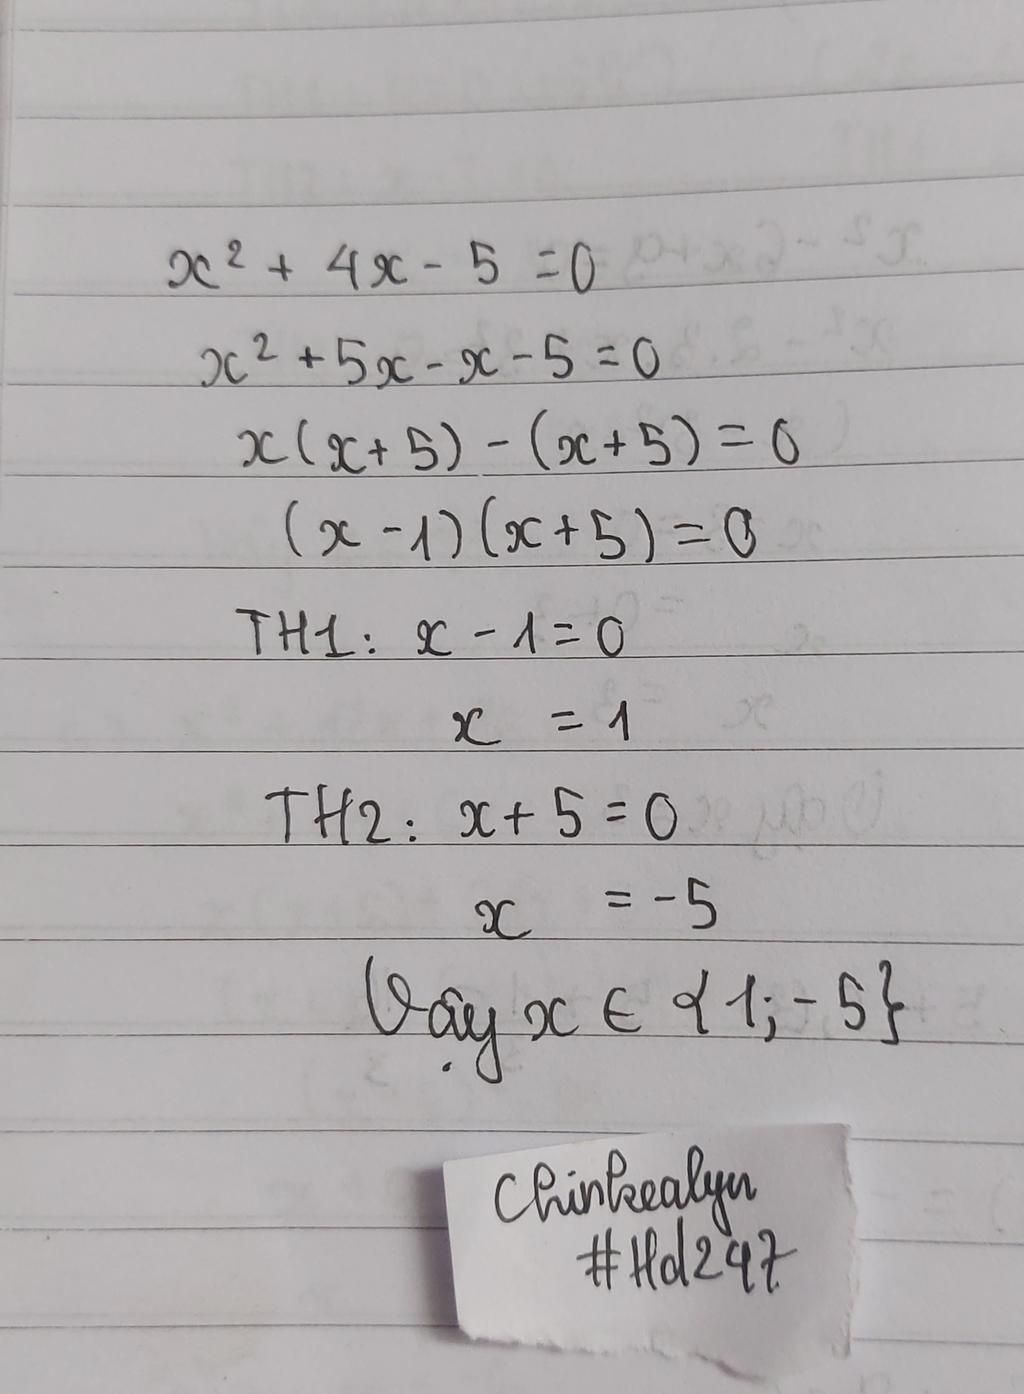 x² + 4x - 5 = 0
x² + 5x - x - 5 = 0
x(x + 5) - (x + 5) = 0
(x - 1)(x + 5) = 0
TH1: x - 1 = 0
x = 1
TH2: x + 5 = 0
x = -5
Vậy x ∈ {1; -5}
Chinkealyn
#Hd247